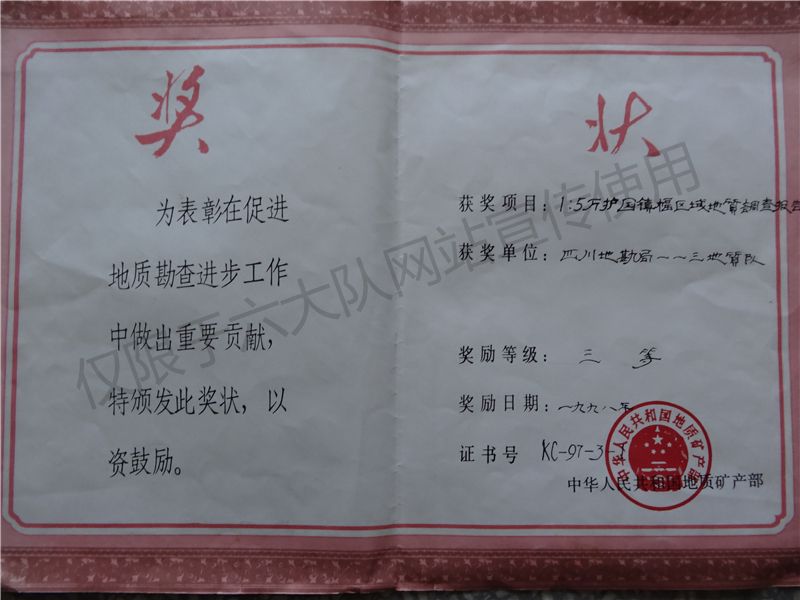 奖
为表彰在促进
地质勘查进步工作
中做出重要贡献，
特颁发此奖状，以
资鼓励。
状
获奖项目：1:5万护国镇幅区域地质调查报告
获奖单位：四川地勘局一一三地质队
奖励等级：三 等
奖励日期：一九九八年
证书号 KC-97-3-
中华人民共和国地质矿产部
中华人民共和国地质矿产部
仅限于六大队网站宣传使用